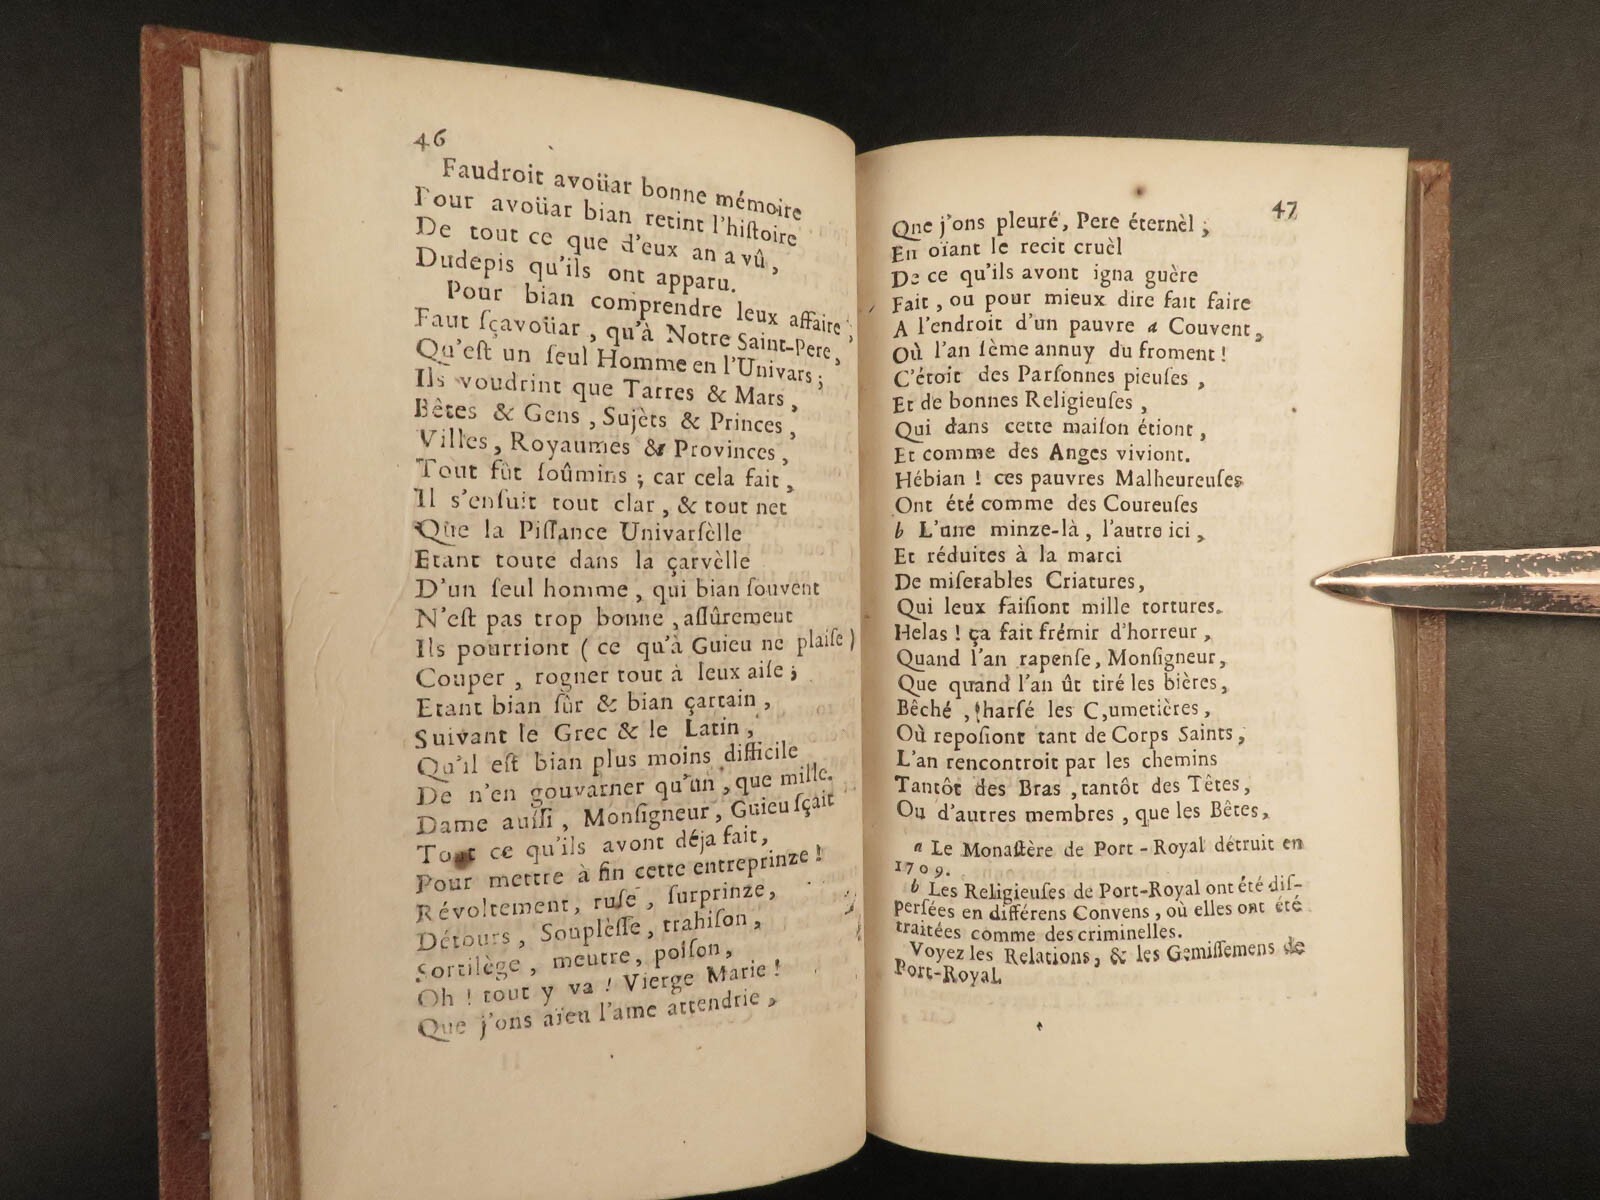 46
Faudroit avoüar bonne mémoire
Pour avoüar bian retint l'hiſtoire
De tout ce que d'eux an a vû,
Dudepis qu'ils ont apparu.
Pour bian comprendre leux affaire;
Faut ſçavoüar, qu'à Notre Saint-Pere,
Qu'eſt un ſeul Homme en l'Univars;
Ils voudrint que Tarres & Mars,
Bêtes & Gens, Sujèts & Princes,
Villes, Royaumes & Provinces,
Tout fût ſoûmins; car cela fait,
Il s'enſuit tout clar, & tout net
Que la Piſſance Univarſèlle
Etant toute dans la çarvèlle
D'un ſeul homme, qui bian ſouvent
N'eſt pas trop bonne, aſſûrement
Ils pourriont (ce qu'à Guieu ne plaiſe)
Couper, rogner tout à leux aiſe;
Etant bian ſûr & bian çartain,
Suivant le Grec & le Latin,
Qu'il eſt bian plus moins difficile
De n'en gouvarner qu'un, que mille.
Dame auſſi, Monſigneur, Guieu ſçait
Tout ce qu'ils avont déja fait,
Pour mettre à fin cette entreprinze!
Révoltement, ruſe, ſurprinze,
Détours, Souplèſſe, trahiſon,
Sortilège, meutre, poiſon,
Oh! tout y va! Vierge Marie!
Que j'ons aïeu l'ame attendrie,
47
Que j'ons pleuré, Pere éternèl;
En oïant le recit cruèl
De ce qu'ils avont igna guère
Fait, ou pour mieux dire fait faire
A l'endroit d'un pauvre a Couvent,
Où l'an ſème annuy du froment!
C'étoit des Parſonnes pieuſes,
Et de bonnes Religieuſes,
Qui dans cette maiſon étiont,
Et comme des Anges viviont.
Hébian! ces pauvres Malheureuſes
Ont été comme des Coureuſes
b L'une minze-là, l'autre ici,
Et réduites à la marci
De miſerables Criatures,
Qui leux faiſiont mille tortures.
Helas! ça fait frémir d'horreur,
Quand l'an rapenſe, Monſigneur,
Que quand l'an ût tiré les bières,
Bêché, harſé les C,umetières,
Où repoſiont tant de Corps Saints,
L'an rencontroit par les chemins
Tantôt des Bras, tantôt des Têtes,
Ou d'autres membres, que les Bêtes,
a Le Monaſtère de Port-Royal détruit en
1709.
b Les Religieuſes de Port-Royal ont été diſ-
perſées en différens Convens, où elles ont été
traitées comme des criminelles.
Voyez les Relations, & les Gemiſſemens de
Port-Royal.